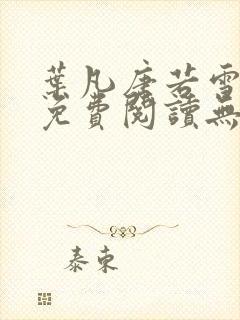 葉凡唐若雪
免費閱讀無
泰東